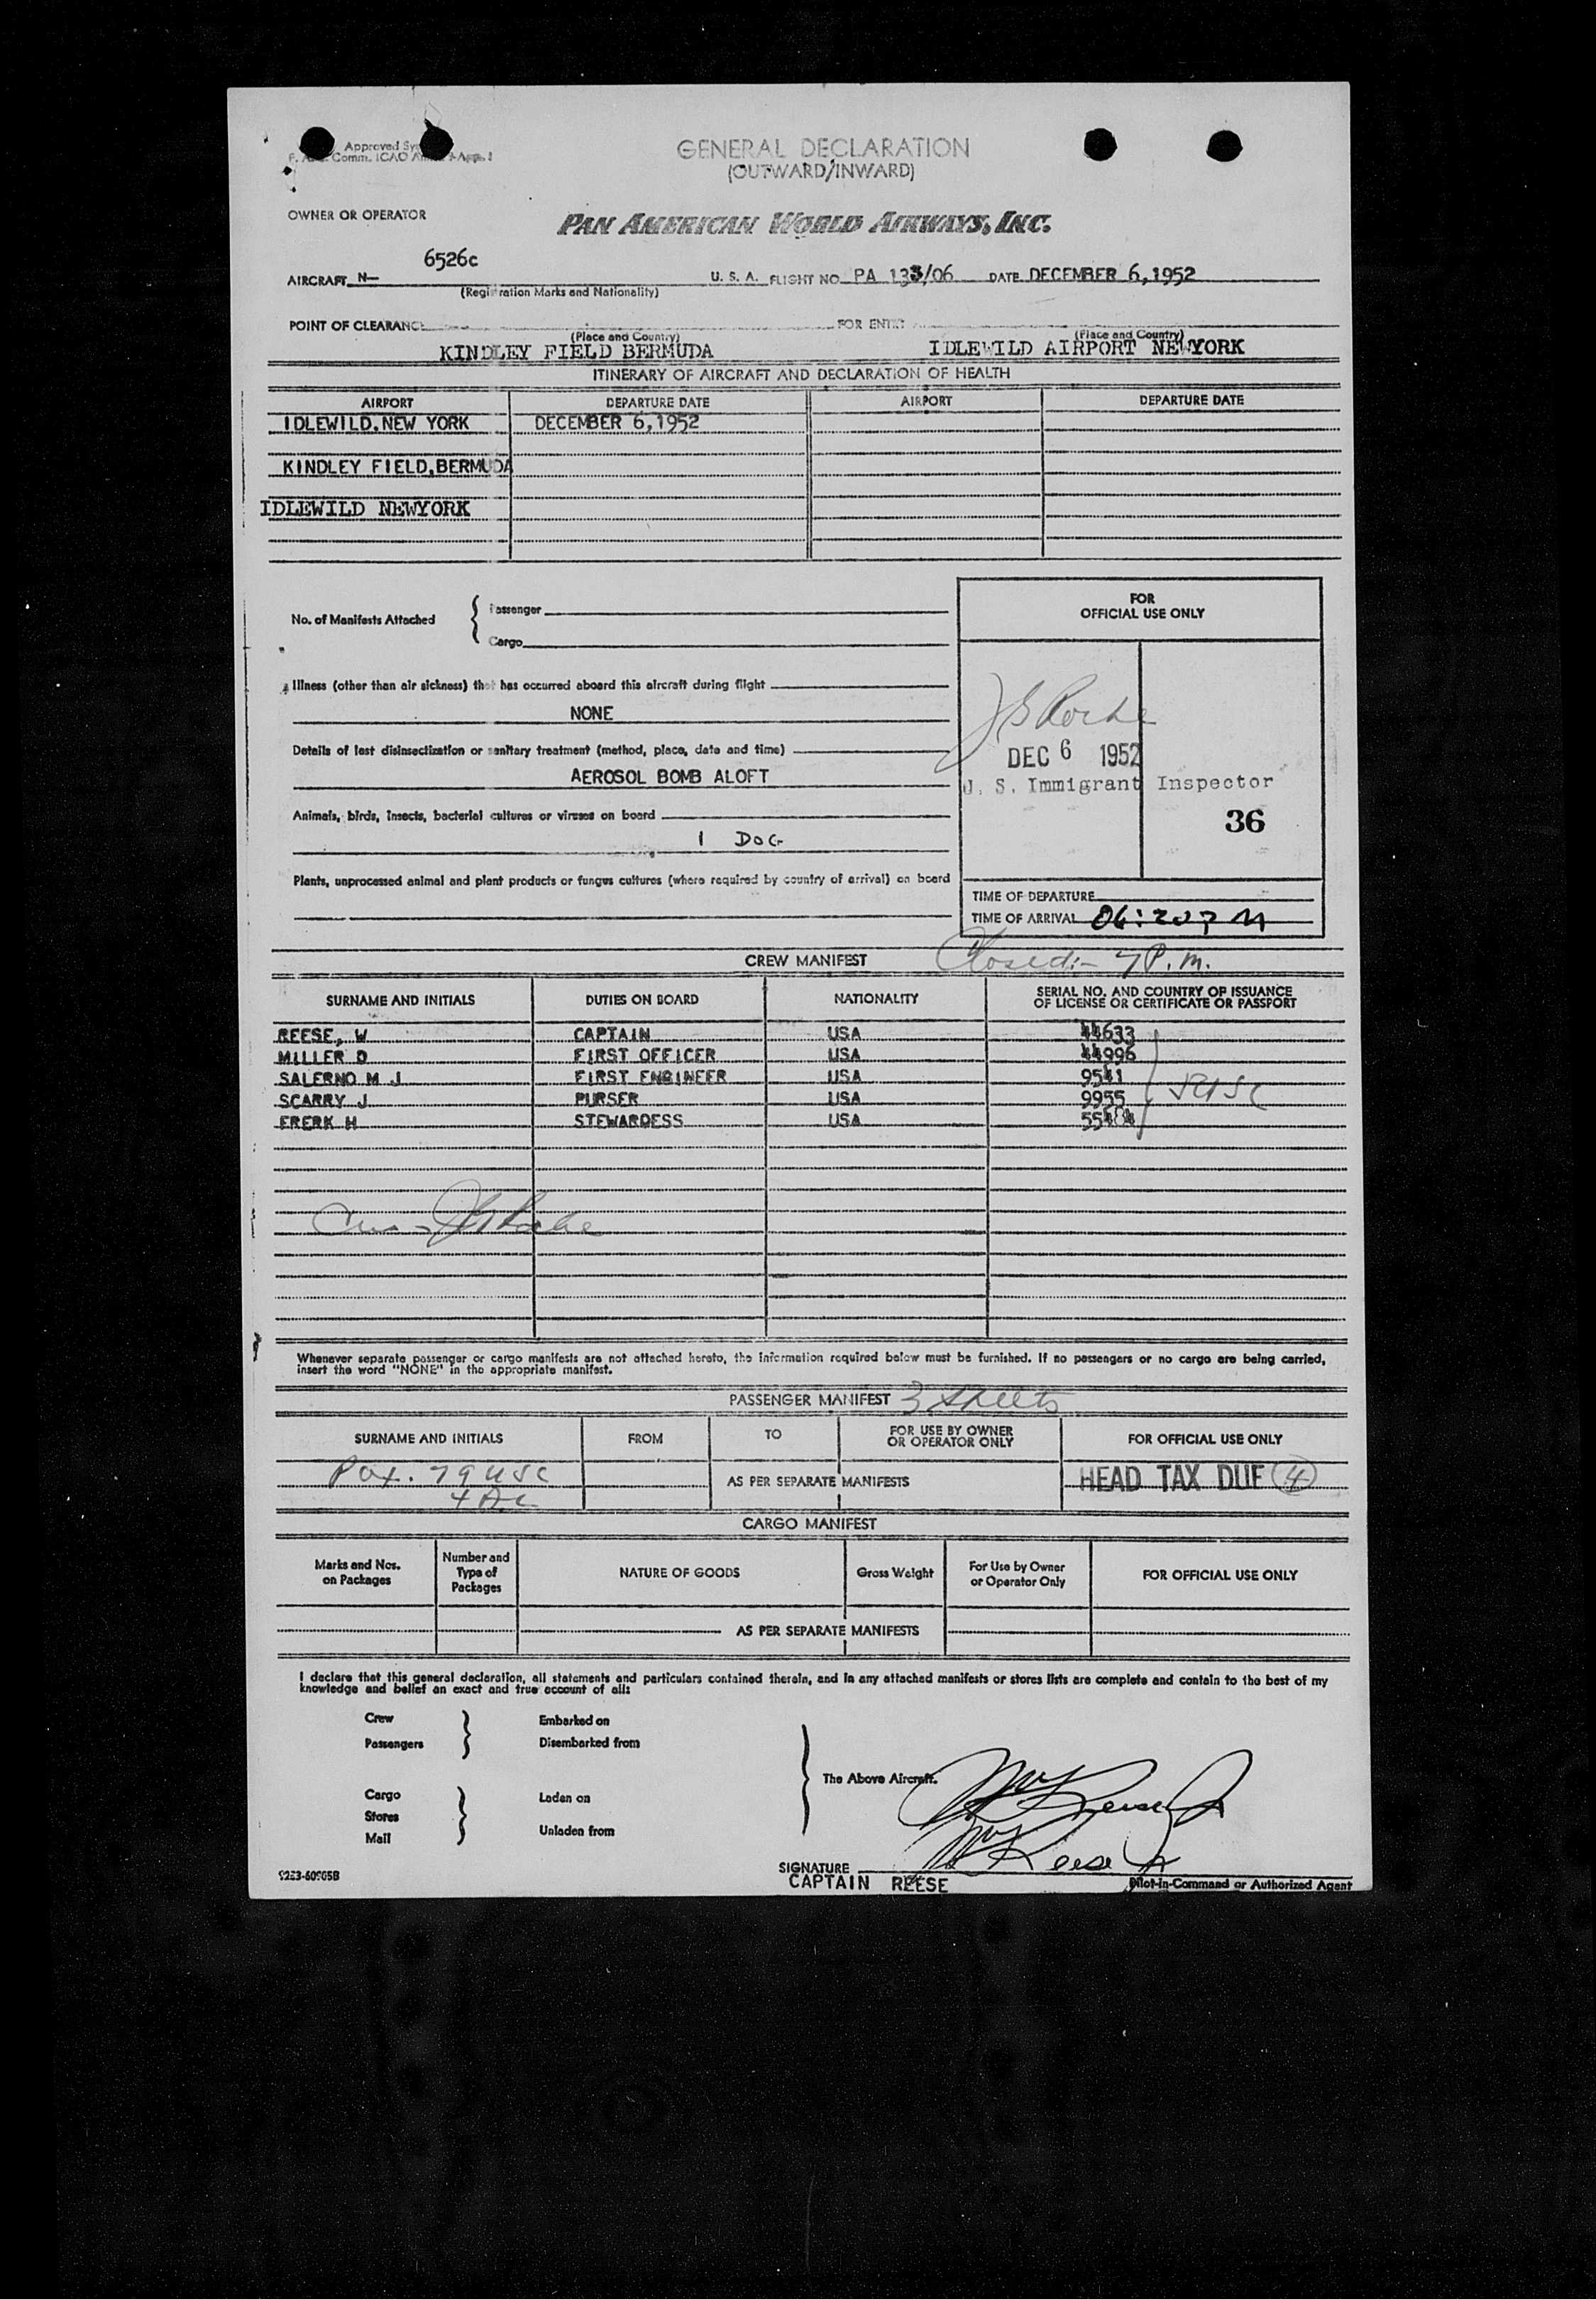 Approved
Comm. ICAO
GENERAL DECLARATION
(OUTWARD/INWARD)
OWNER OR OPERATOR
PAN AMERICAN WORLD AIRWAYS, INC.
AIRCRAFT N— 6526c U. S. A. FLIGHT NO. PA 133/06 DATE DECEMBER 6,1952
(Registration Marks and Nationality)
POINT OF CLEARANCE FOR ENTRY
(Place and Country) (Place and Country)
KINDLEY FIELD BERMUDA IDLEWILD AIRPORT NEWYORK
ITINERARY OF AIRCRAFT AND DECLARATION OF HEALTH
AIRPORT DEPARTURE DATE AIRPORT DEPARTURE DATE
IDLEWILD.NEW YORK DECEMBER 6,1952
KINDLEY FIELD,BERMUDA
IDLEWILD NEWYORK
No. of Manifests Attached { Passenger
Cargo
FOR
OFFICIAL USE ONLY
Illness (other than air sickness) that has occurred aboard this aircraft during flight
NONE
Details of last disinsectization or sanitary treatment (method, place, date and time)
AEROSOL BOMB ALOFT
Animals, birds, insects, bacterial cultures or viruses on board
1 DOG
Plants, unprocessed animal and plant products or fungus cultures (where required by country of arrival) on board
J S Roche
DEC 6 1952
U. S. Immigrant Inspector
36
TIME OF DEPARTURE
TIME OF ARRIVAL 06:20 P M
CREW MANIFEST Closed:- 7 P.M.
SURNAME AND INITIALS DUTIES ON BOARD NATIONALITY SERIAL NO. AND COUNTRY OF ISSUANCE
OF LICENSE OR CERTIFICATE OR PASSPORT
REESE, W CAPTAIN USA 44633
MILLER D FIRST OFFICER USA 44996
SALERNO M J FIRST ENGINEER USA 9541
SCARRY J PURSER USA 9955
FRERK H STEWARDESS USA
5 USC
Whenever separate passenger or cargo manifests are not attached hereto, the information required below must be furnished. If no passengers or no cargo are being carried,
insert the word "NONE" in the appropriate manifest.
PASSENGER MANIFEST 3 sheets
SURNAME AND INITIALS FROM TO FOR USE BY OWNER
OR OPERATOR ONLY FOR OFFICIAL USE ONLY
Pax. 79 USC AS PER SEPARATE MANIFESTS HEAD TAX DUE 4
CARGO MANIFEST
Marks and Nos.
on Packages Number and
Type of
Packages NATURE OF GOODS Gross Weight For Use by Owner
or Operator Only FOR OFFICIAL USE ONLY
AS PER SEPARATE MANIFESTS
I declare that this general declaration, all statements and particulars contained therein, and in any attached manifests or stores lists are complete and contain to the best of my
knowledge and belief an exact and true account of all:
Crew Embarked on
Passengers Disembarked from
The Above Aircraft.
Cargo Laden on
Stores
Mail Unladen from
SIGNATURE
CAPTAIN REESE Pilot-in-Command or Authorized Agent